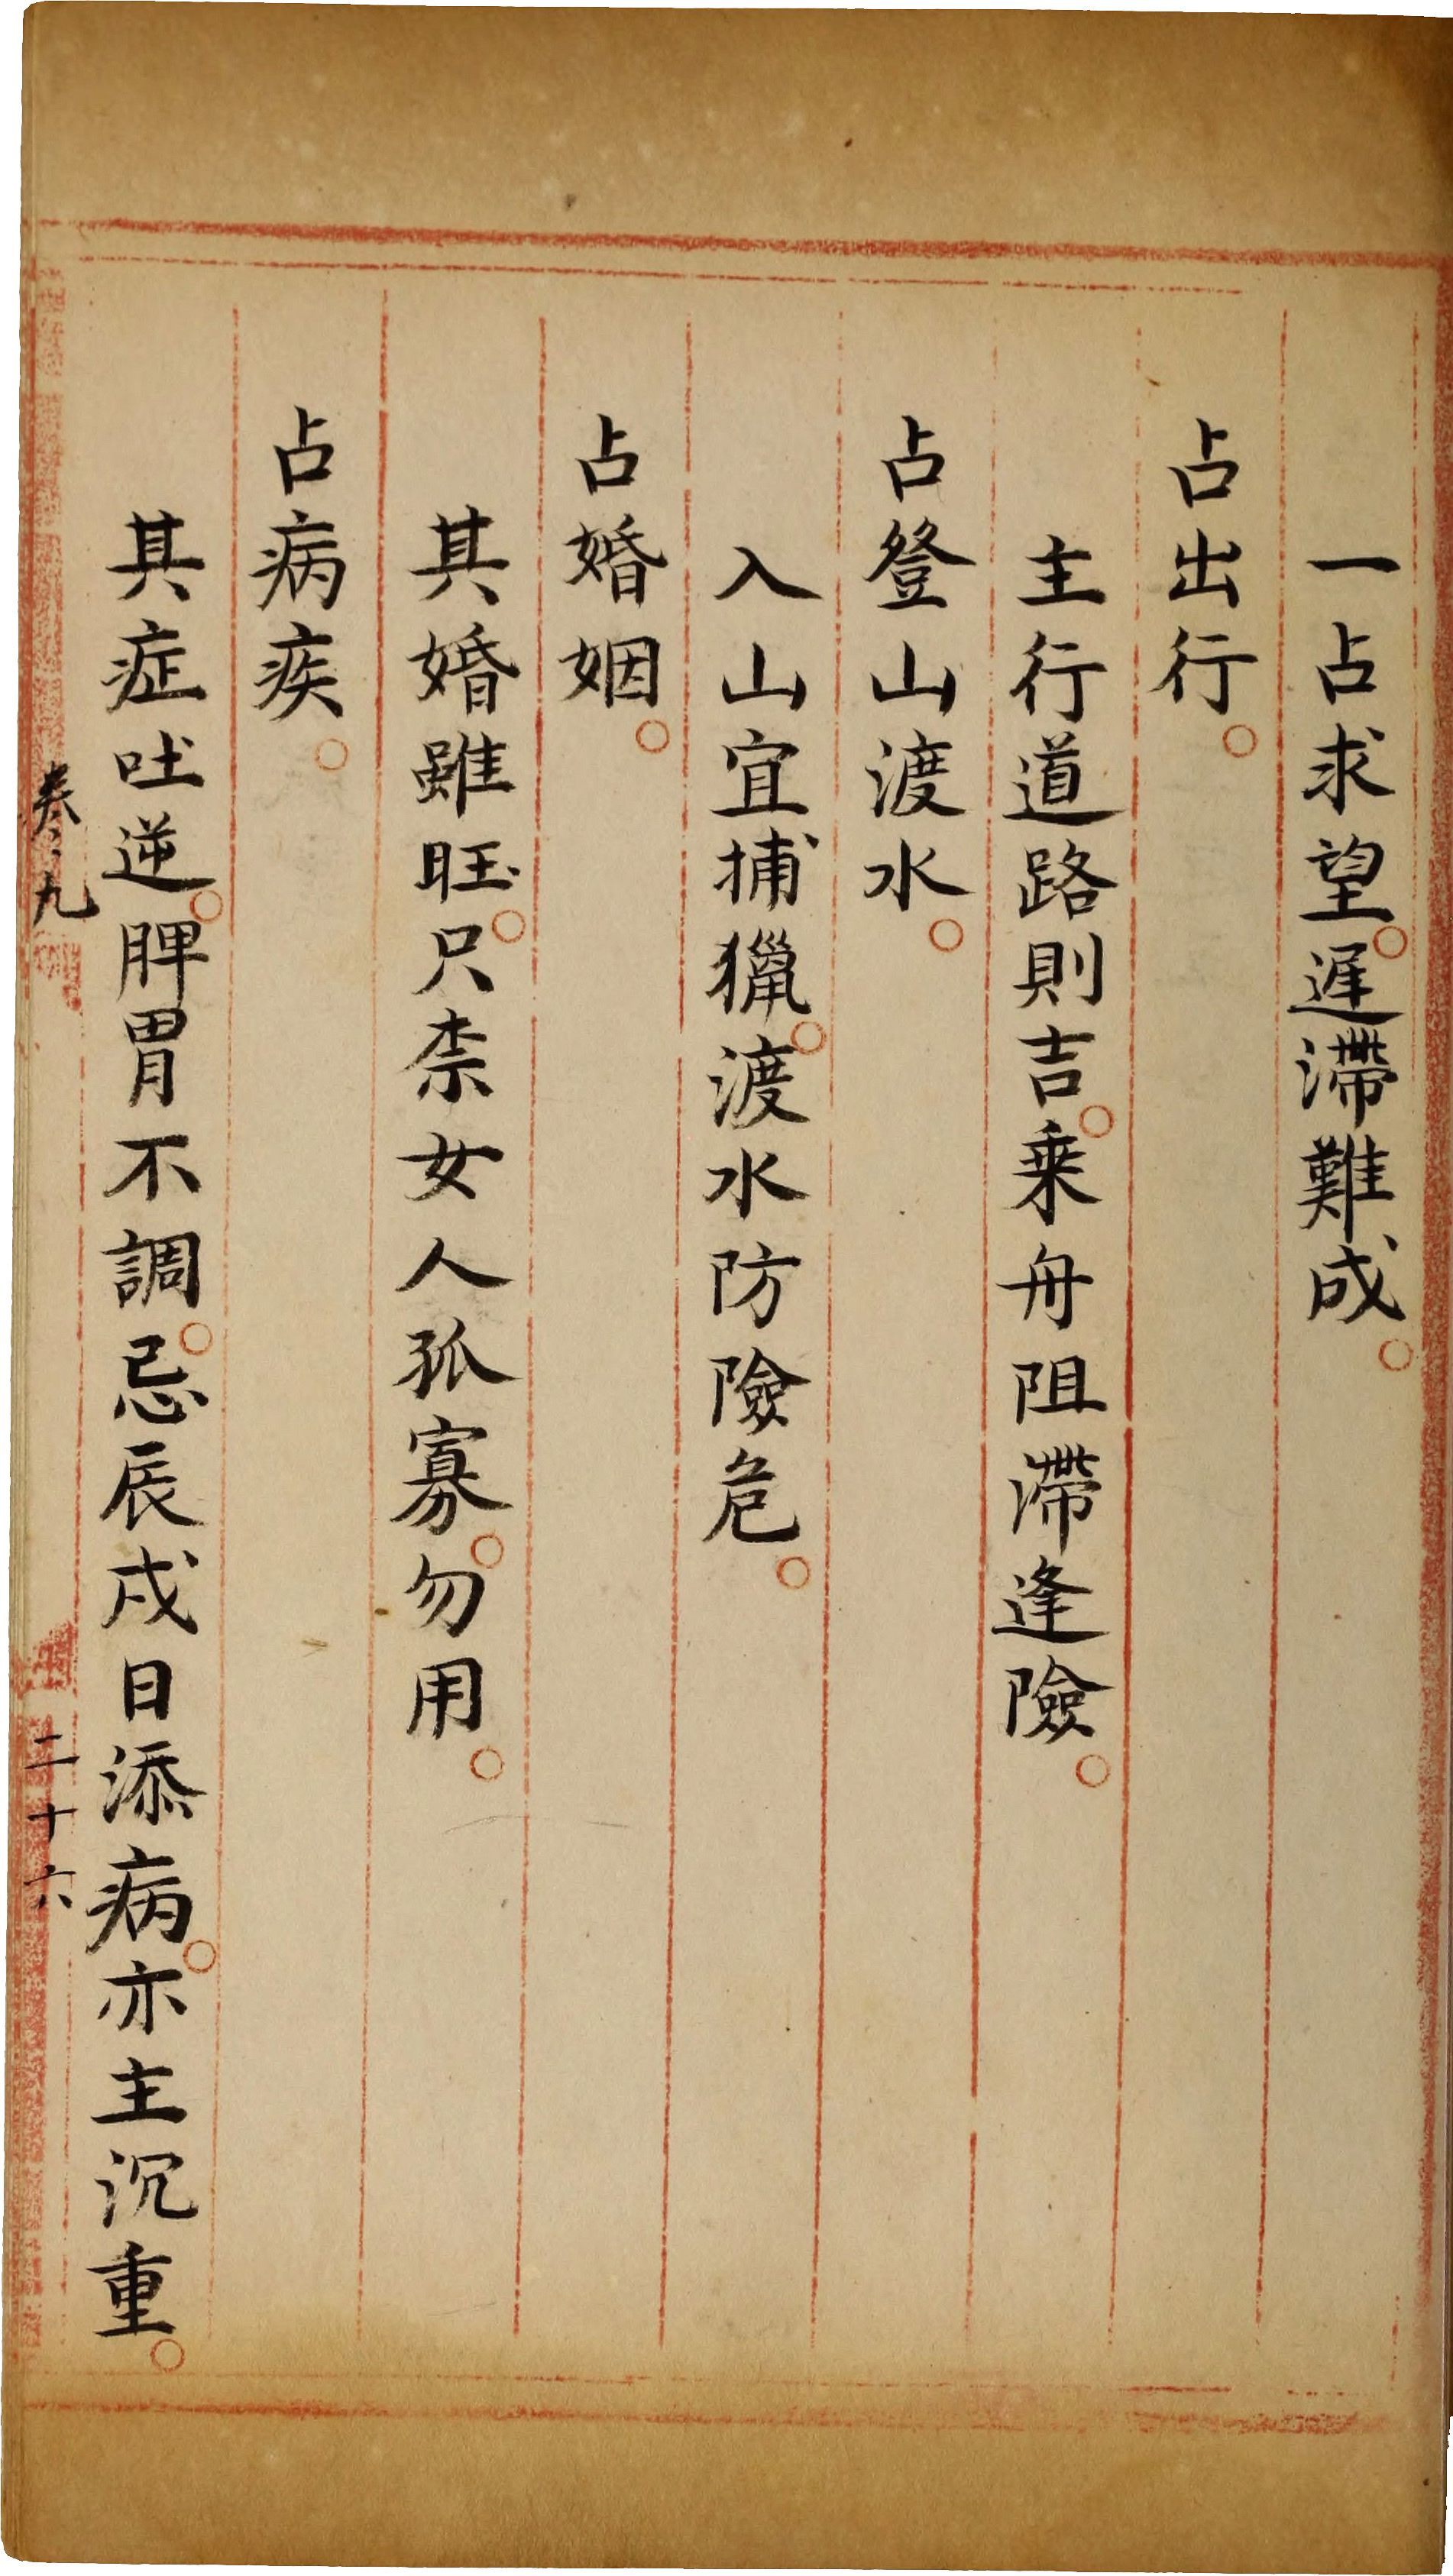 一占求望。遲滯難成。
占出行。
主行道路則吉。乗舟阻滯逢險。
占登山渡水。
入山宜捕獵。渡水防險危。
占婚姻。
其婚雖旺。只柰女人孤寡。勿用。
占病疾。
其症吐逆。脾胃不調。忌辰戌日添病。亦主沉重。
卷九
二十六